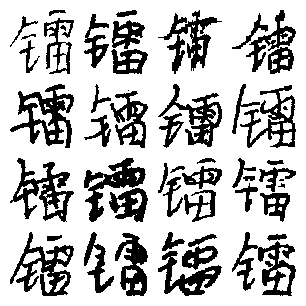 镭镭镭镭
镭镭镭镭
镭镭镭镭
镭镭镭镭